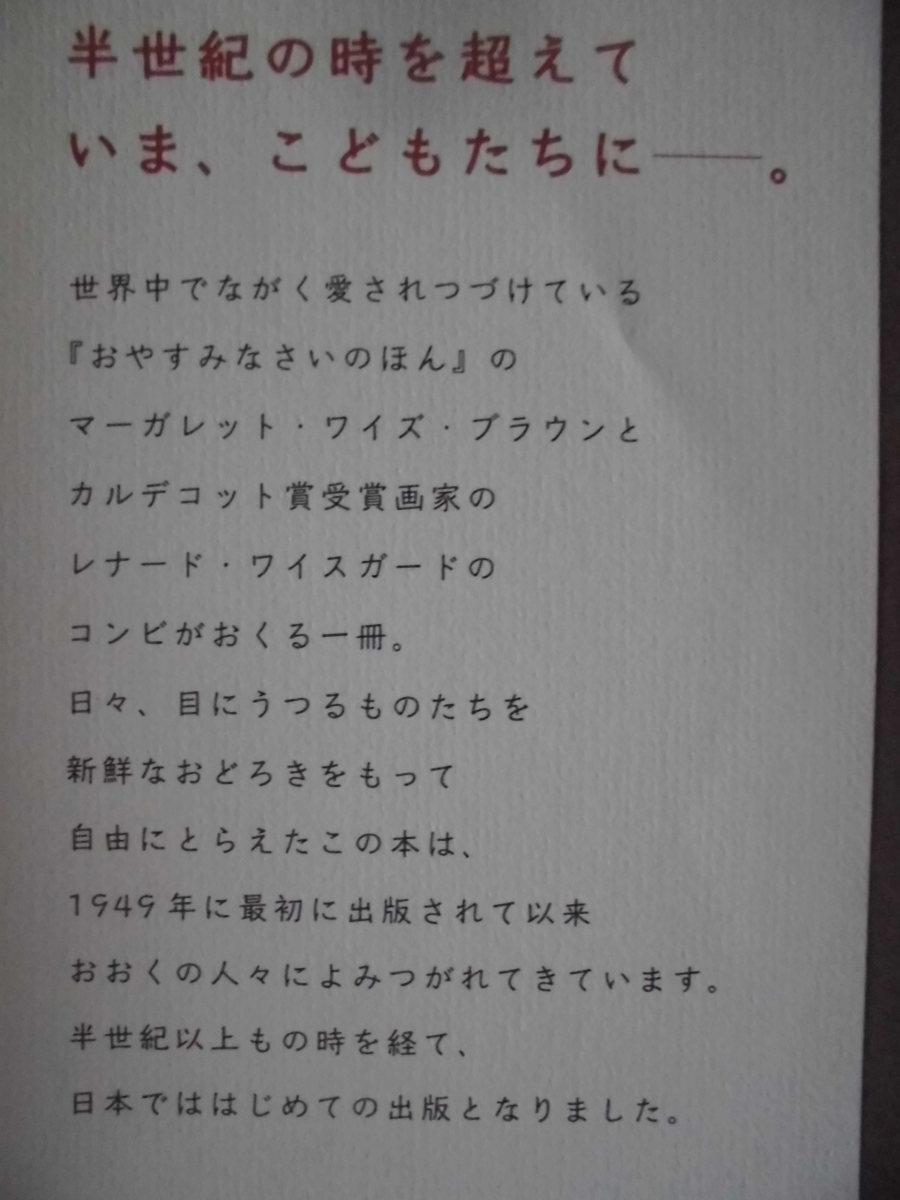 半世紀の時を超えて
いま、こどもたちに――。
世界中でながく愛されつづけている
『おやすみなさいのほん』の
マーガレット・ワイズ・ブラウンと
カルデコット賞受賞画家の
レナード・ワイスガードの
コンビがおくる一冊。
日々、目にうつるものたちを
新鮮なおどろきをもって
自由にとらえたこの本は、
1949年に最初に出版されて以来
おおくの人々によみつがれてきています。
半世紀以上もの時を経て、
日本でははじめての出版となりました。